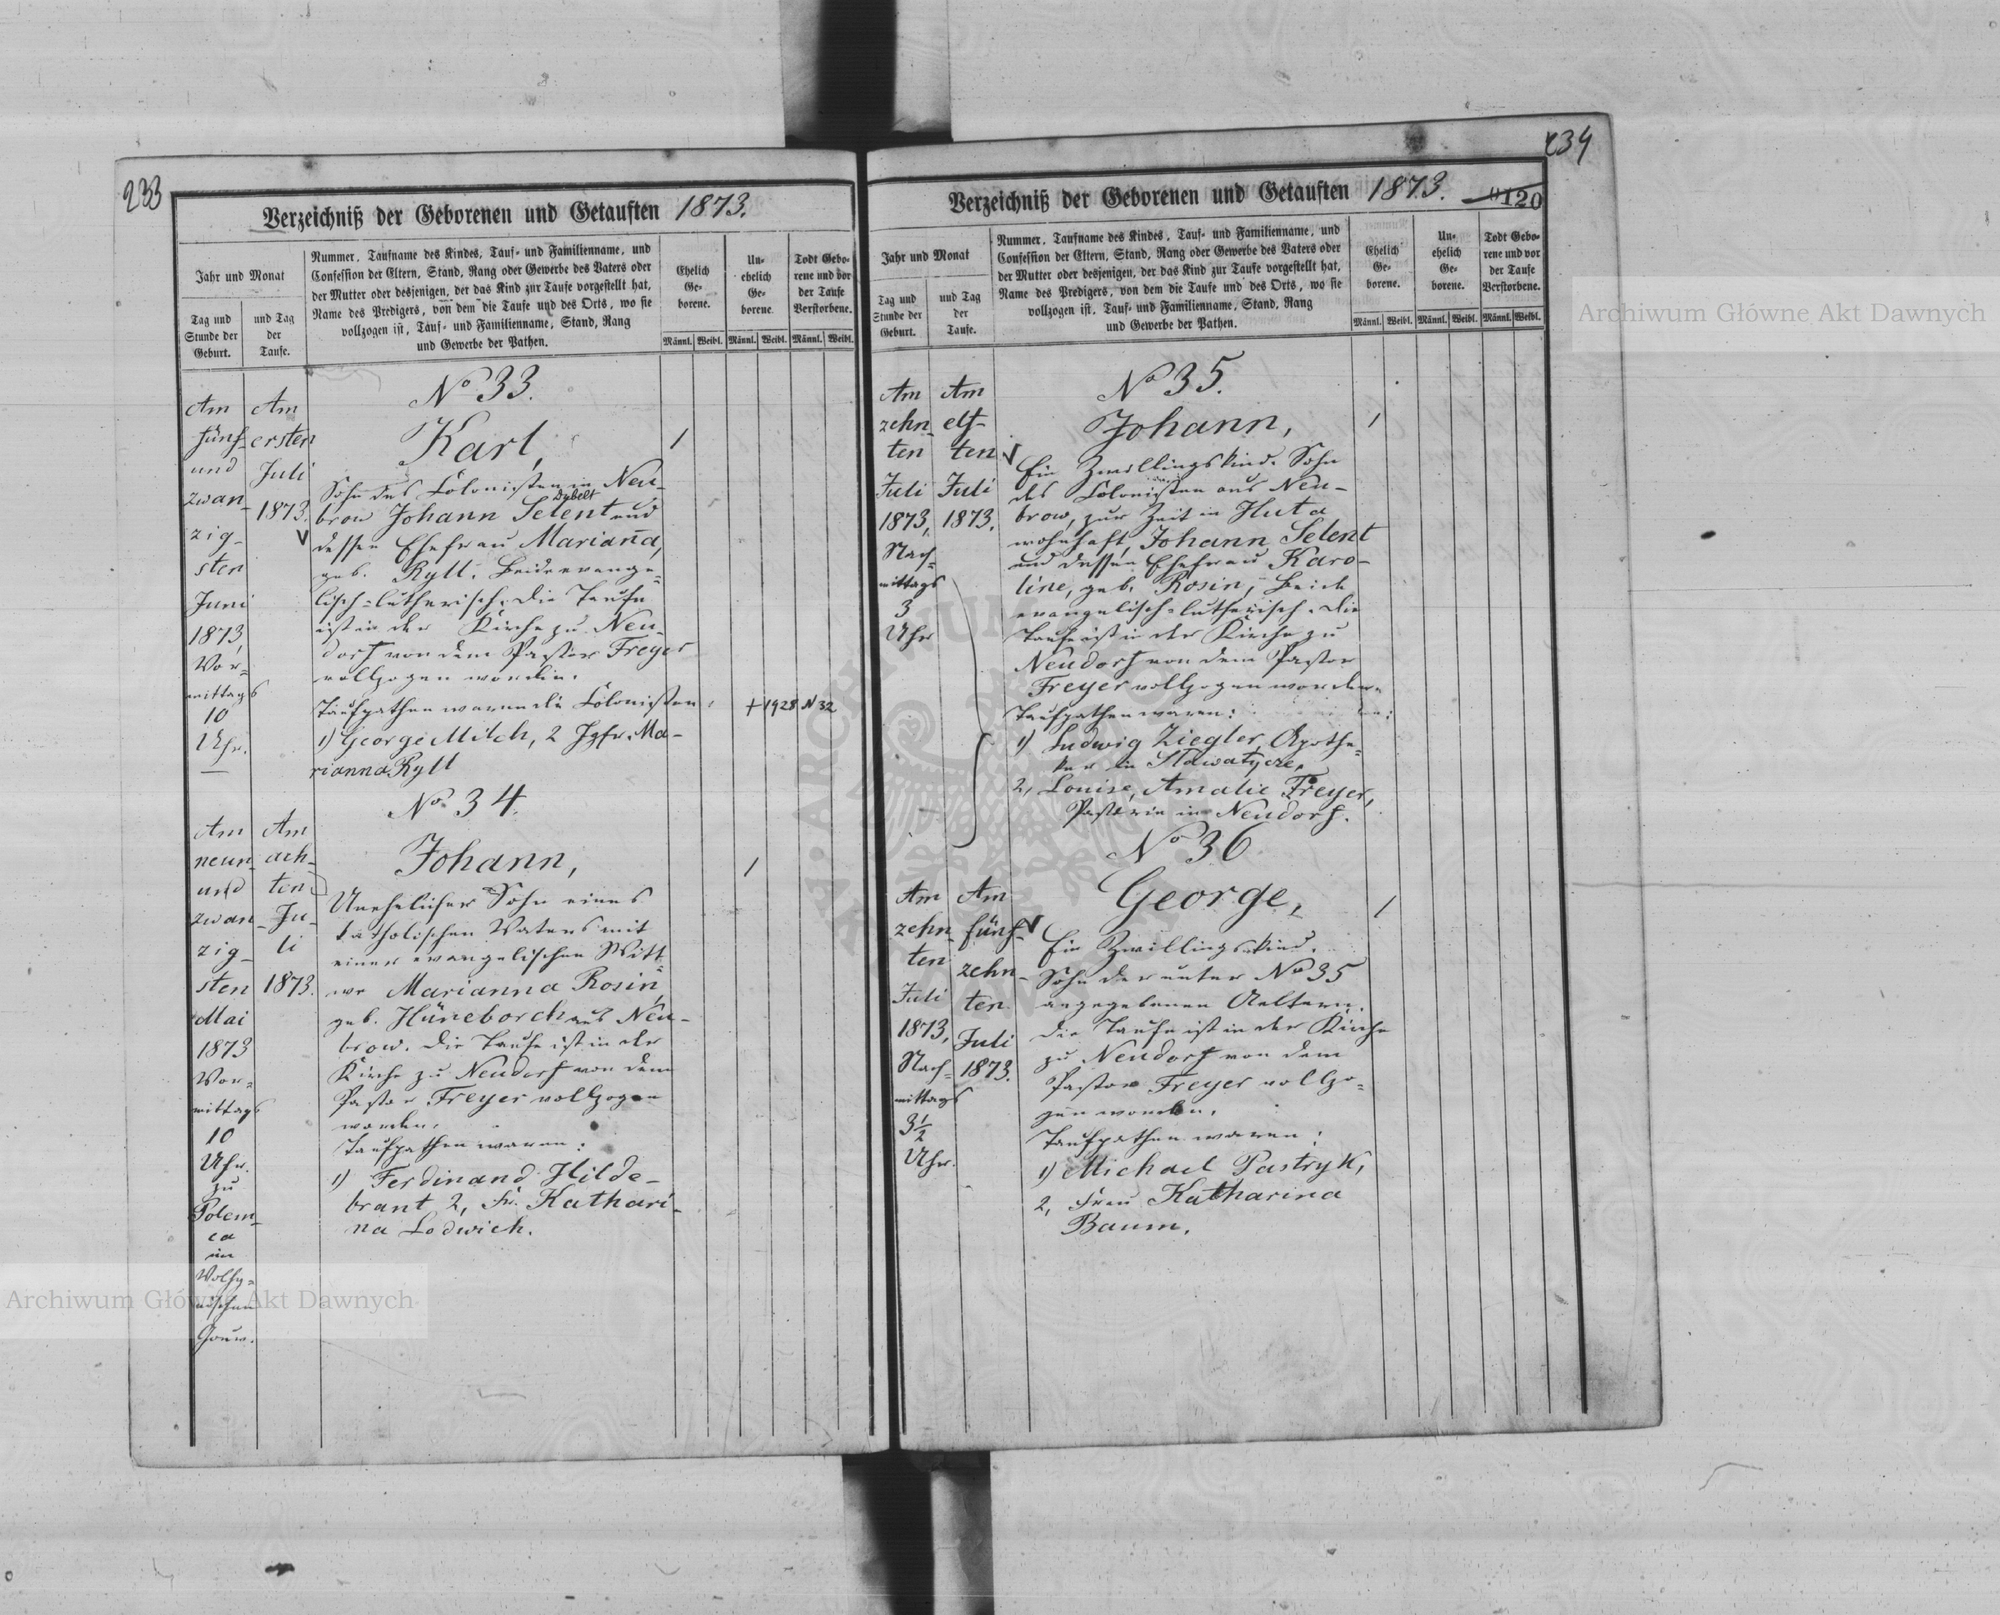 233
Verzeichniß der Geborenen und Getauften 1873.
Jahr und Monat
Tag und
Stunde der
Geburt.
und Tag
der
Taufe.
Nummer, Taufname des Kindes, Tauf- und Familienname, und
Confession der Eltern, Stand, Rang oder Gewerbe des Vaters oder
der Mutter oder desjenigen, der das Kind zur Taufe vorgestellt hat,
Name des Predigers, von dem die Taufe und des Orts, wo sie
vollzogen ist, Tauf- und Familienname, Stand, Rang
und Gewerbe der Pathen.
Ehelich
Ge-
borene.
Un-
ehelich
Ge-
borene
Todt Gebo-
rene und vor
der Taufe
Verstorbene.
Männl. Weibl. Männl. Weibl. Männl. Weibl.
Am
fünf-
und
zwan-
zig-
sten
Juni
1873,
Vor-
mittags
10
Uhr.
Am
ersten
Juli
1873.
No 33.
Karl,
Sohn des Colonisten in Neu-
Dybelt
brow Johann Selent und
dessen Ehefrau Marianna,
geb. Ryll. Beide evange-
lisch-lutherisch. Die Taufe
ist in der Kirche zu Neu-
dorf von dem Pastor Freyer
vollzogen worden.
Taufpathen waren die Colonisten:
1) George Milch, 2 Jgfr. Ma-
rianna Ryll
1
+ 1928 N 32
Am
neun-
und
zwan-
zig-
sten
Mai
1873
Vor-
mittags
10
Uhr.
zu
Polem-
ca
im
Volhy-
nischen
Gouv.
Am
ach-
ten
Ju-
li
1873.
No 34.
Johann,
Unehelicher Sohn eines
katholischen Vaters mit
einer evangelischen Witt-
we Marianna Rosin,
geb. Hüneborch aus Neu-
brow. Die Taufe ist in der
Kirche zu Neudorf von dem
Pastor Freyer vollzogen
worden.
Taufpathen waren:
1) Ferdinand Hilde-
brant 2, Fr. Kathari-
na Lodwich.
1
234
120
Verzeichniß der Geborenen und Getauften 1873.
Jahr und Monat
Tag und
Stunde der
Geburt.
und Tag
der
Taufe.
Nummer, Taufname des Kindes, Tauf- und Familienname, und
Confession der Eltern, Stand, Rang oder Gewerbe des Vaters oder
der Mutter oder desjenigen, der das Kind zur Taufe vorgestellt hat,
Name des Predigers, von dem die Taufe und des Orts, wo sie
vollzogen ist, Tauf- und Familienname, Stand, Rang
und Gewerbe der Pathen.
Ehelich
Ge-
borene.
Un-
ehelich
Ge-
borene.
Todt Gebo-
rene und vor
der Taufe
Verstorbene.
Männl. Weibl. Männl. Weibl. Männl. Weibl.
Am
zehn-
ten
Juli
1873,
Nach-
mittags
3
Uhr
Am
elf-
ten
Juli
1873.
No 35.
Johann,
Ein Zwillingskind. Sohn
des Colonisten aus Neu-
brow, zur Zeit in Huta
wohnhaft, Johann Selent
und dessen Ehefrau Karo-
line, geb. Rosin, Beide
evangelisch-lutherisch. Die
Taufe ist in der Kirche zu
Neudorf von dem Pastor
Freyer vollzogen worden.
Taufpathen waren:
1) Ludwig Ziegler, Apothe-
ker in Slawatycze,
2, Louise, Amalie Freyer,
Pastorin in Neudorf.
1
Am
zehn-
ten
Juli
1873,
Nach-
mittags
3½
Uhr.
Am
fünf-
zehn-
ten
Juli
1873.
No 36
George,
Ein Zwillingskind.
Sohn der unter No 35
angegebenen Aeltern.
Die Taufe ist in der Kirche
zu Neudorf von dem
Pastor Freyer vollzo-
gen worden.
Taufpathen waren:
1) Michael Pastryk,
2, Frau Katharina
Baum.
1
Archiwum Główne Akt Dawnych
Archiwum Główne Akt Dawnych